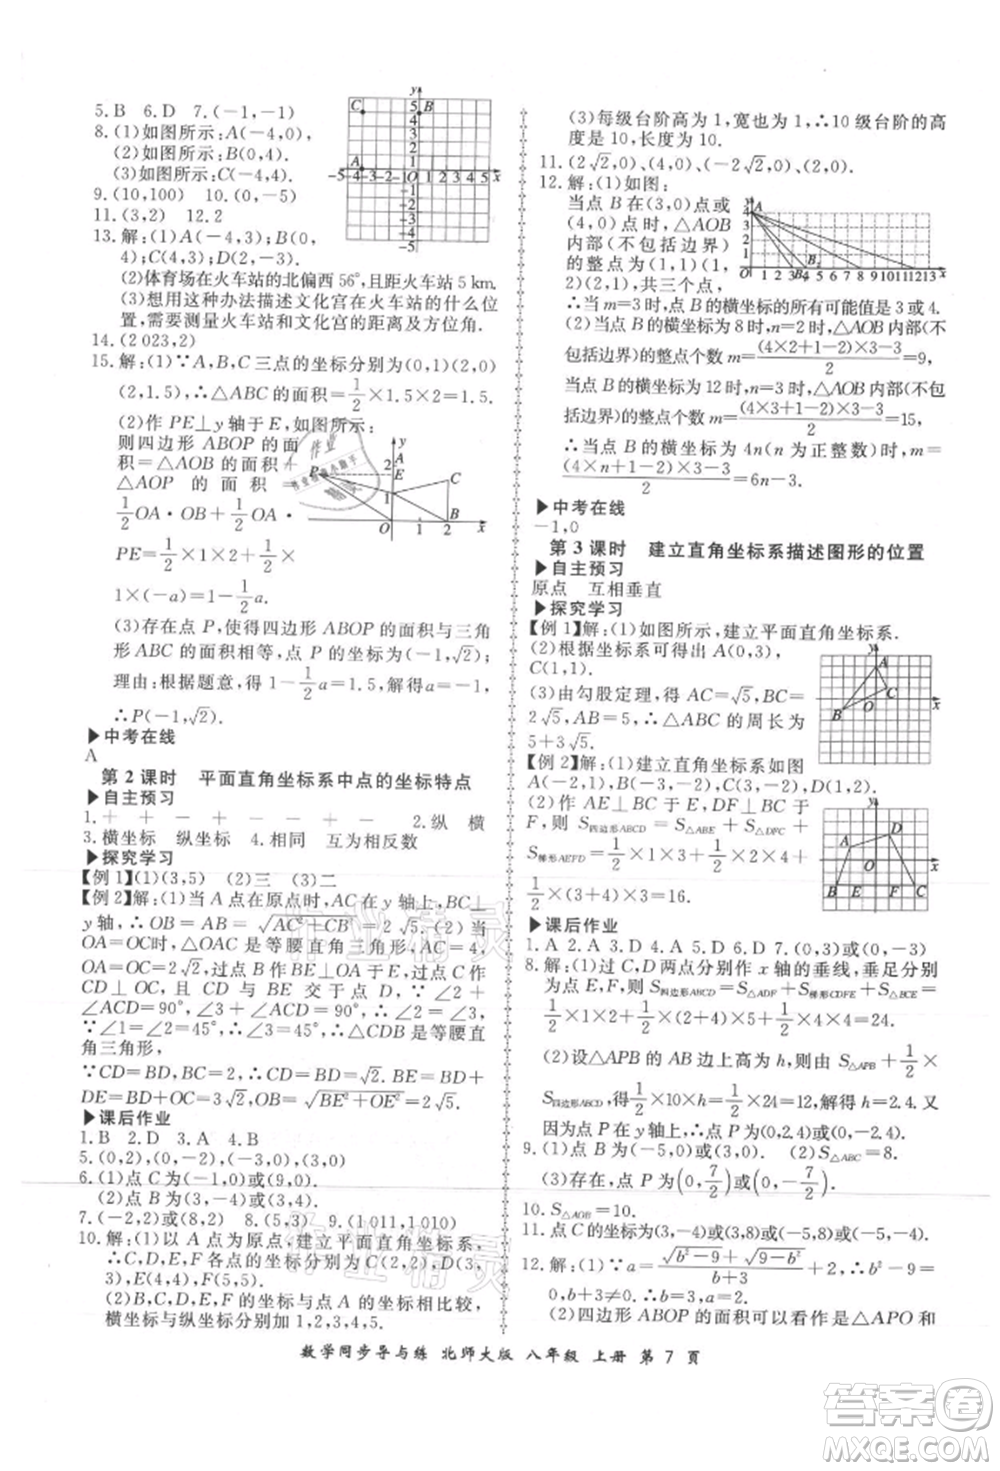 5. B　6. D　7. (-1,-1)
8. (1)如图所示:A(-4,0),
(2)如图所示:B(0,4).
(3)如图所示:C(-4,4).
9. (10,100)　10. (0,-5)
11. (3,2)　12. 2
13. 解:(1)A(-4,3);B(0,
4);C(4,3);D(2,-1).
(2)体育场在火车站的北偏西56°,且距火车站5 km.
(3)想用这种办法描述文化宫在火车站的什么位
置,需要测量火车站和文化宫的距离及方位角.
14. (2 023,2)
15. 解:(1)∵A,B,C三点的坐标分别为(0,1)(2,0)
(2,1.5),∴△ABC的面积=1/2×1.5×2=1.5.
(2)作PE⊥y轴于E,如图所示:
则四边形ABOP的面
积=△AOB的面积+
△AOP的面积=
1/2 OA·OB+1/2 OA·
PE=1/2×1×2+1/2×
1×(-a)=1-1/2 a.
(3)存在点P,使得四边形ABOP的面积与三角
形ABC的面积相等,点P的坐标为(-1,√2).
理由:根据题意,得1-1/2 a=1.5,解得a=-1,
∴P(-1,√2).
▶中考在线
A
第2课时　平面直角坐标系中点的坐标特点
▶自主预习
1. + + - + - - + -　2. 纵　横
3. 横坐标　纵坐标　4. 相同　互为相反数
▶探究学习
【例1】(1)(3,5)　(2)三　(3)二
【例2】解:(1)当A点在原点时,AC=4,BC⊥
y轴,∴OB=AB=√(AC²+CB²)=2√5.(2)当
OA=OC时,△OAC是等腰直角三角形,AC=4,
∴OA=OC=2√2,过点B作BE⊥OA于E,过点C
作CD⊥OC,且CD与BE交于点D,∠2+
∠ACD=90°,∠3+∠ACD=90°,∴∠2=∠3.
∵∠1=∠2=45°,∴∠3=45°,∴△CDB是等腰直
角三角形,
∵CD=BD,BC=2,∴CD=BD=√2.∴BE=BD+
DE=BD+OC=3√2,∴OB=√(BE²+OE²)=√26.
▶课后作业
1. B　2. D　3. A　4. B
5. (0,2),(-1,0),(-3,2)
6. (1)点C为(-1,0)或(9,0)
(2)点C(0,3)或(0,-3)
7. (-2,2)或(8,2)　8. (3,5)　9. (1 011,1 010)
10. 解:(1)以A点为原点,建立平面直角坐标系;
∴C,D,H,E,F各点的坐标分别为C(2,1),D(
3,4),E(5,3),F(5,5),H(6,4).
(2)B,C,D,E,F,H的坐标与点A的坐标相比较,
横坐标与纵坐标分别加1,2,3,4,5,6.
(3)每级台阶高为1,宽也为1,∴10级台阶的高
度是10,长度为10.
11. (2√2,0),(4,0),(-2√2,0),(2,0).
12. 解:(1)如图:
当点B在(3,0)点或
(4,0)点时,△AOB
内部(不包括边界)
的整点为(1,1)(1,
2)(2,1),共三个点,
∴当m=3时,点B的横坐标的所有可能值是3或4.
(2)当点B的横坐标为8时,n=2时,△AOB内部(不
包括边界)的整点个数m=((4×2+1-2)×3-3)/2=9,
当点B的横坐标为12时,n=3时,△AOB内部(不
包括边界)的整点个数m=((4×3+1-2)×3-3)/2=15,
∴当点B的横坐标为4n(n为正整数)时,m=
((4×n+1-2)×3-3)/2=6n-3.
▶中考在线
-1,0
第3课时　建立直角坐标系描述图形的位置
▶自主预习
原点　互相垂直
▶探究学习
【例1】解:(1)如图所示,建立平面直角坐标系.
(2)根据坐标系可得出A(0,3),
C(1,1).
(3)由勾股定理,得AC=√5,BC=
2√5,AB=5,∴△ABC的周长为
5+3√5.
【例2】解:(1)建立坐标系如图
A(-2,1),B(-3,-2),C(3,-2),D(1,2)
(2)作AE⊥BC于E,DF⊥BC于F,
则S四边形ABCD=S△ABE+S△DFC+
S梯形AEFD=1/2×1×3+1/2×2×4
+1/2×(3+4)×3=16.
▶课后作业
1. A　2. A　3. A　4. A　5. D　6. D　7. (0,3)或(0,-3)
8. 解:(1)过C,D两点分别作x轴的垂线,垂足分别
为点E,F,则S四边形ABCD=S△ADF+S梯形CDFE+S△BCE=
1/2×1×2+1/2×(2+4)×5+1/2×4×4=24.
(2)设△APB的AB边上高为h,则由S△APB=1/2×
S四边形ABCD,得1/2×10×h=1/2×24,解得h=2.4,又
因为点P在y轴上,∴点P(0,2.4)或(0,-2.4).
9. (1)点B为(5,0)或(-3,0).　(2)S△ABC=8.
(3)存在,点P为(0,7/2)或(0,-7/2).
10. S△AOB=10.
11. 点C的坐标为(3,-4)或(3,8)或(-5,-4)或(-5,8)
12. 解:(1)∵a=(√(b²-9)+√(9-b²))/(b+3)+2,∴b²-9=
0,b+3≠0.∴b=3,a=2.
(2)四边形ABOP的面积可以看作是△APO和
数学同步导与练　北师大版　八年级　上册　第7页
作业精灵
答案圈
MXQE.COM